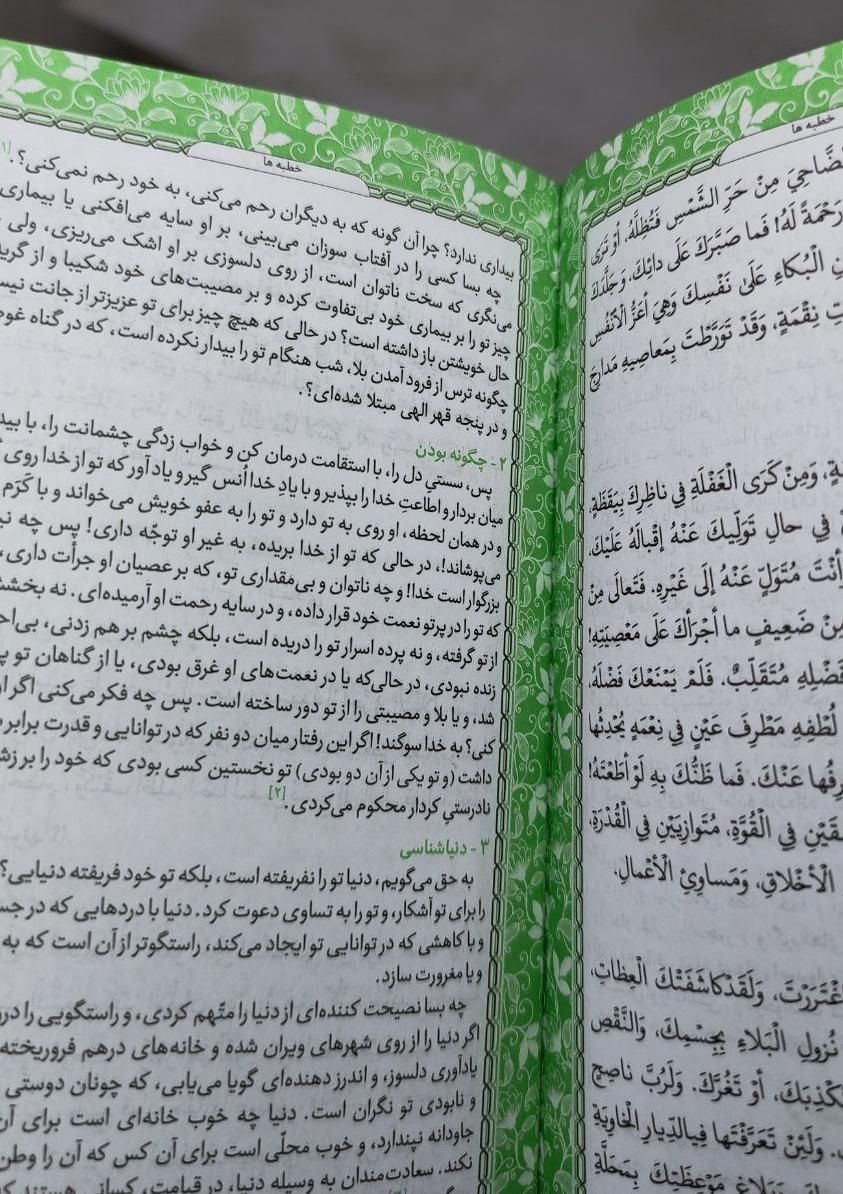 خطبه ها
الضَّاحِيَ مِنْ حَرِّ الشَّمْسِ فَتُظِلُّهُ، أَوْ تَرَى
رَحْمَةً لَهُ! فَما صَبَّرَكَ عَلَى دائِكَ، وَجَلَّدَكَ
الْبُكاءِ عَلَىٰ نَفْسِكَ وَهِيَ أَعَزُّ الْأَنْفُسِ
نِقْمَةٍ، وَقَدْ تَوَرَّطْتَ بِمَعاصِيهِ مَدارِجَ
وَمِنْ كَرَى الْغَفْلَةِ فِي ناظِرِكَ بِيَقَظَةٍ،
فِي حالِ تَوَلِّيكَ عَنْهُ إقْبالَهُ عَلَيْكَ،
أَنْتَ مُتَوَلٍّ عَنْهُ إلَى غَيْرِهِ. فَتَعالَى مِنْ
مِنْ ضَعِيفٍ ما أَجْرَأَكَ عَلَى مَعْصِيَتِهِ!
فَضْلِهِ مُتَقَلِّبٌ. فَلَمْ يَمْنَعْكَ فَضْلَهُ،
لُطْفِهِ مَطْرِفَ عَيْنٍ فِي نِعْمَةٍ يُحْدِثُها
عَنْكَ. فَما ظَنُّكَ بِهِ لَوْ أَطَعْتَهُ!
فِي الْقُوَّةِ، مُتَوازِيَيْنِ فِي الْقُدْرَةِ،
الْأَخْلاقِ، وَمَساوِئِ الْأَعْمالِ.
اغْتَرَرْتَ، وَلَقَدْ كاشَفَتْكَ الْعِظاتِ،
نُزولِ الْبَلاءِ بِجِسْمِكَ، وَالنَّقْصِ
تَكْذِبَكَ، أَوْ تَغُرَّكَ. وَلَرُبَّ ناصِحٍ
وَلَئِنْ تَعَرَّفْتَها فِي الدِّيارِ الْخاوِيَةِ
مَوْعِظَتِكَ بِمَحَلَّةِ
خطبه ها
بیداری ندارد؟ چرا آن گونه که به دیگران رحم می‌کنی، به خود رحم نمی‌کنی؟.
چه بسا کسی را در آفتاب سوزان می‌بینی، بر او سایه می‌افکنی یا بیماری
می‌نگری که سخت ناتوان است، از روی دلسوزی بر او اشک می‌ریزی، ولی
چیز تو را بر بیماری خود بی‌تفاوت کرده و بر مصیبت‌های خود شکیبا و از
حال خویشتن باز داشته است؟ در حالی که هیچ چیز برای تو عزیزتر از جانت
چگونه ترس از فرود آمدن بلا، شب هنگام تو را بیدار نکرده است، که در گناه
و در پنجه قهر الهی مبتلا شده‌ای؟.
۲ - چگونه بودن
پس، سستیِ دل را، با استقامت درمان کن و خواب زدگی چشمانت را، با
میان بردار و اطاعتِ خدا را بپذیر و با یادِ خدا اُنس گیر و یاد آور که تو از خدا روی
و در همان لحظه، او روی به تو دارد و تو را به عفو خویش می‌خواند و با کَرَم
می‌پوشاند!، در حالی که تو از خدا بریده، به غیر او توجّه داری! پس چه
بزرگوار است خدا! و چه ناتوان و بی‌مقداری تو، که بر عصیان او جرأت داری،
که تو را در پرتو نعمت خود قرار داده، و در سایه رحمت او آرمیده‌ای. نه
از تو گرفته، و نه پرده اسرار تو را دریده است، بلکه چشم بر هم زدنی،
زنده نبودی، در حالی‌که یا در نعمت‌های او غرق بودی، یا از گناهان تو
شد، و یا بلا و مصیبتی را از تو دور ساخته است. پس چه فکر می‌کنی اگر
کنی؟ به خدا سوگند! اگر این رفتار میان دو نفر که در توانایی و قدرت برابر
داشت (و تو یکی از آن دو بودی) تو نخستین کسی بودی که خود را بر
نادرستیِ کردار محکوم می‌کردی.[۲]
۳ - دنیاشناسی
به حق می‌گویم، دنیا تو را نفریفته است، بلکه تو خود فریفته دنیایی؟
را برای تو آشکار، و تو را به تساوی دعوت کرد. دنیا با دردهایی که در
و با کاهشی که در توانایی تو ایجاد می‌کند، راستگوتر از آن است که به
و یا مغرورت سازد.
چه بسا نصیحت کننده‌ای از دنیا را متّهم کردی، و راستگویی را
اگر دنیا را از روی شهرهای ویران شده و خانه‌های درهم فروریخته
یادآوری دلسوز، و اندرز دهنده‌ای گویا می‌یابی، که چونان دوستی
و نابودی تو نگران است. دنیا چه خوب خانه‌ای است برای آن
جاودانه نپندارد، و خوب محلّی است برای آن کس که آن را وطن
نکند. سعادت‌مندان به وسیله دنیا، در قیامت، کسانی هستند